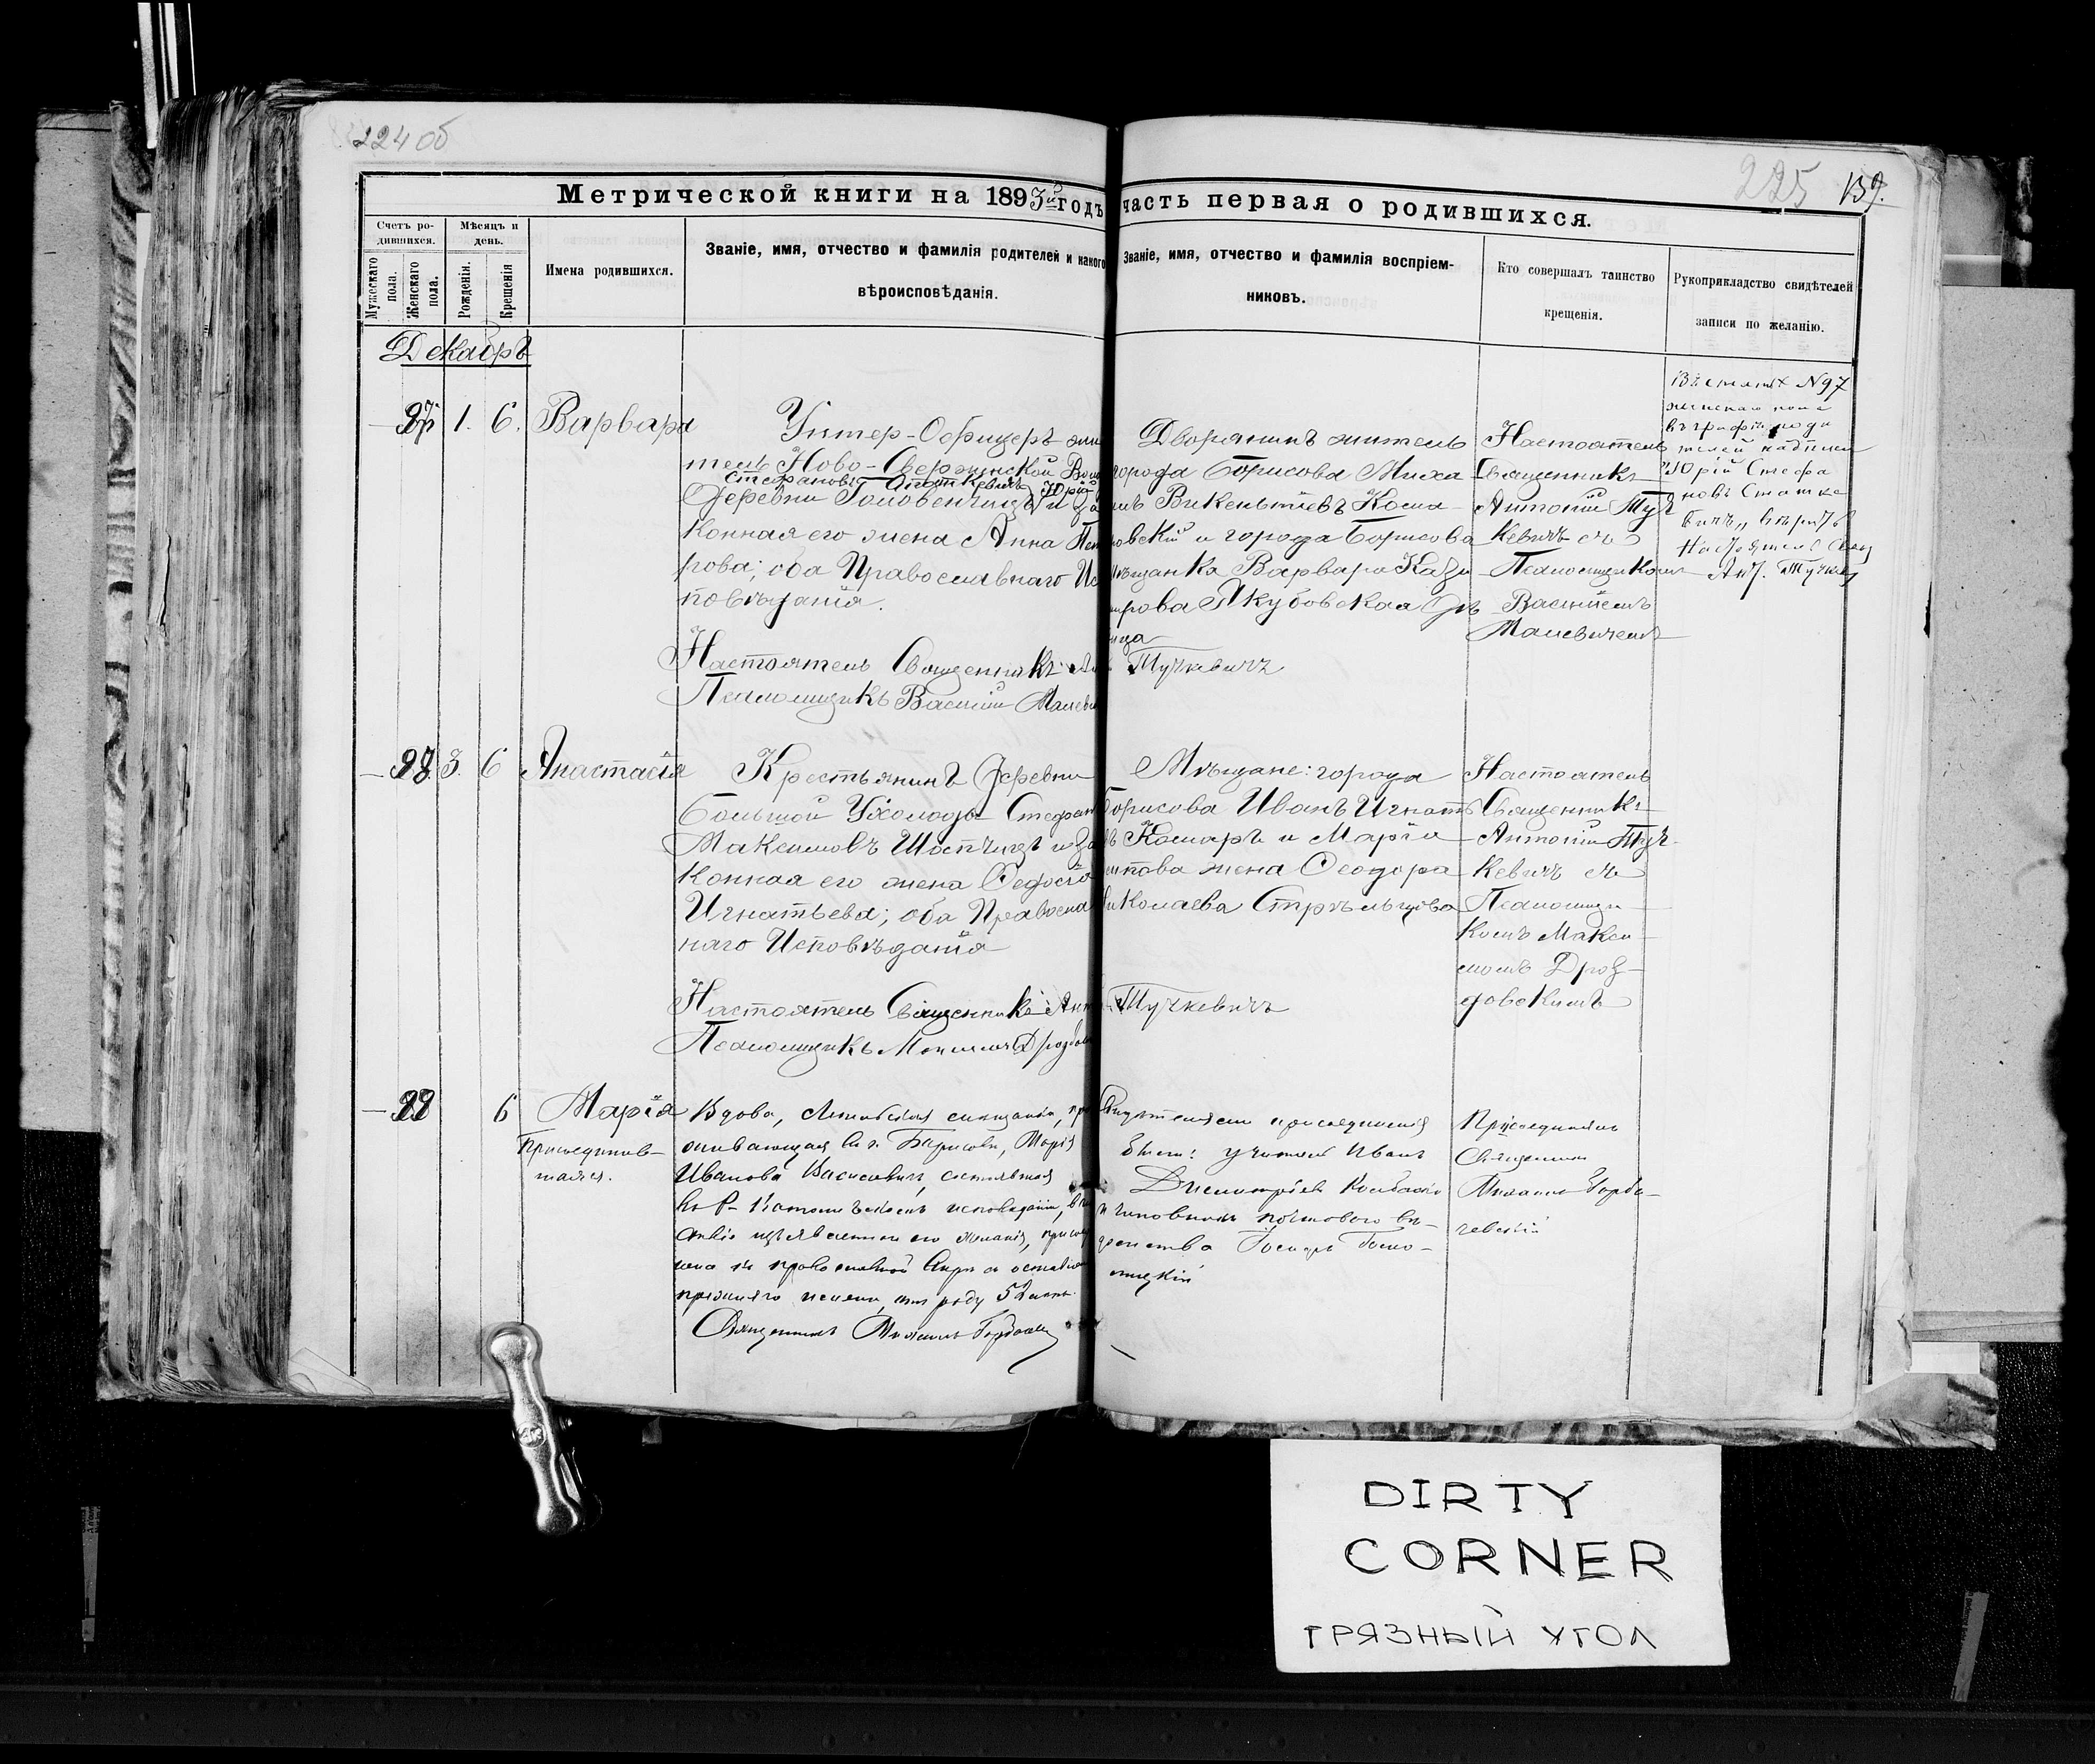 224 об
225 139.
Метрической книги на 1893й годъ часть первая о родившихся.
Счетъ родившихся.
Мужескаго пола.
Женскаго пола.
Мѣсяцъ и день.
Рожденія.
Крещенія
Имена родившихся.
Званіе, имя, отчество и фамилія родителей и какого
вѣроисповѣданія.
Званіе, имя, отчество и фамилія воспріем-
никовъ.
Кто совершалъ таинство
крещенія.
Рукоприкладство свидѣтелей
записи по желанію.
Декабрь
97 1. 6. Варвара
Унтер-Офицеръ жи
тель Ново-Свержинской Воло
Стефановъ Статкевичъ Юрій
деревни Головенчицъ и за
конная его жена Анна Пет
рова; оба Православнаго Ис
повѣданія.
Настоятель Священникъ Ант
Псаломщикъ Василій Малеви
Дворянинъ житель
города Борисова Миха
илъ Викентьевъ Косша
ровскій и города Борисова
мѣщанка Варвара Кази
мірова Якубовская дѣ
вица
Тучкевичъ
Настоятель
Священникъ
Антоній Туч
кевичъ съ
Псаломщикомъ
Василіемъ
Малевичемъ
Въ статьѣ №97
женскаго пола
въ графѣ роди
телей надписи
"Юрій Стефа
новъ Статке
вичъ" вѣрить
Настоятель Свящ
Ант. Тучкев
98 3. 6 Анастасія
Крестьянинъ деревни
Большой Ухолоды Стефанъ
Максимовъ Шостицъ и за
конная его жена Ѳедосія
Игнатьева; оба Правосла
наго Исповѣданія
Настоятель Священникъ Ант
Псаломщикъ Максимъ Дроздов
Мѣщане: города
Борисова Иванъ Игнать
въ Комаръ и Марія
Титова жена Ѳеодора
Николаева Стрѣльцова
Тучкевичъ
Настоятель
Священникъ
Антоній Туч
кевичъ съ
Псаломщи
комъ Макси
момъ Дроз-
довскимъ
99 6 Марія
Присоединив-
шаяся.
Вдова, мѣщанка, про
живающая въ г. Борисовѣ, Марія
Иванова состоявшая
въ Р-Католическомъ исповѣданіи,
ствіе изъявленнаго ею желанія, присое
нена къ православной Церкви съ оставле
прежняго имени, отъ роду 52 лѣтъ.
Священникъ Михаилъ Горбачев
Свидѣтелями присоединенія
были: учитель Иванъ
Дмитріевъ
и чиновникъ почтоваго вѣ-
домства
Присоединялъ
Священникъ
Михаилъ Горба-
чевскій
DIRTY
CORNER
ГРЯЗНЫЙ УГОЛ